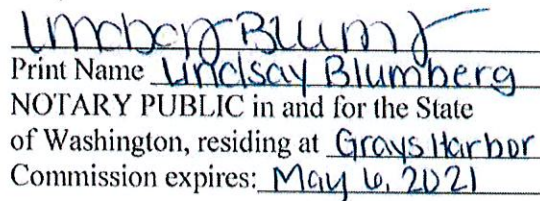 Print Name Lindsay Blumberg
NOTARY PUBLIC in and for the State
of Washington, residing at Grays Harbor
Commission expires: May 6, 2021